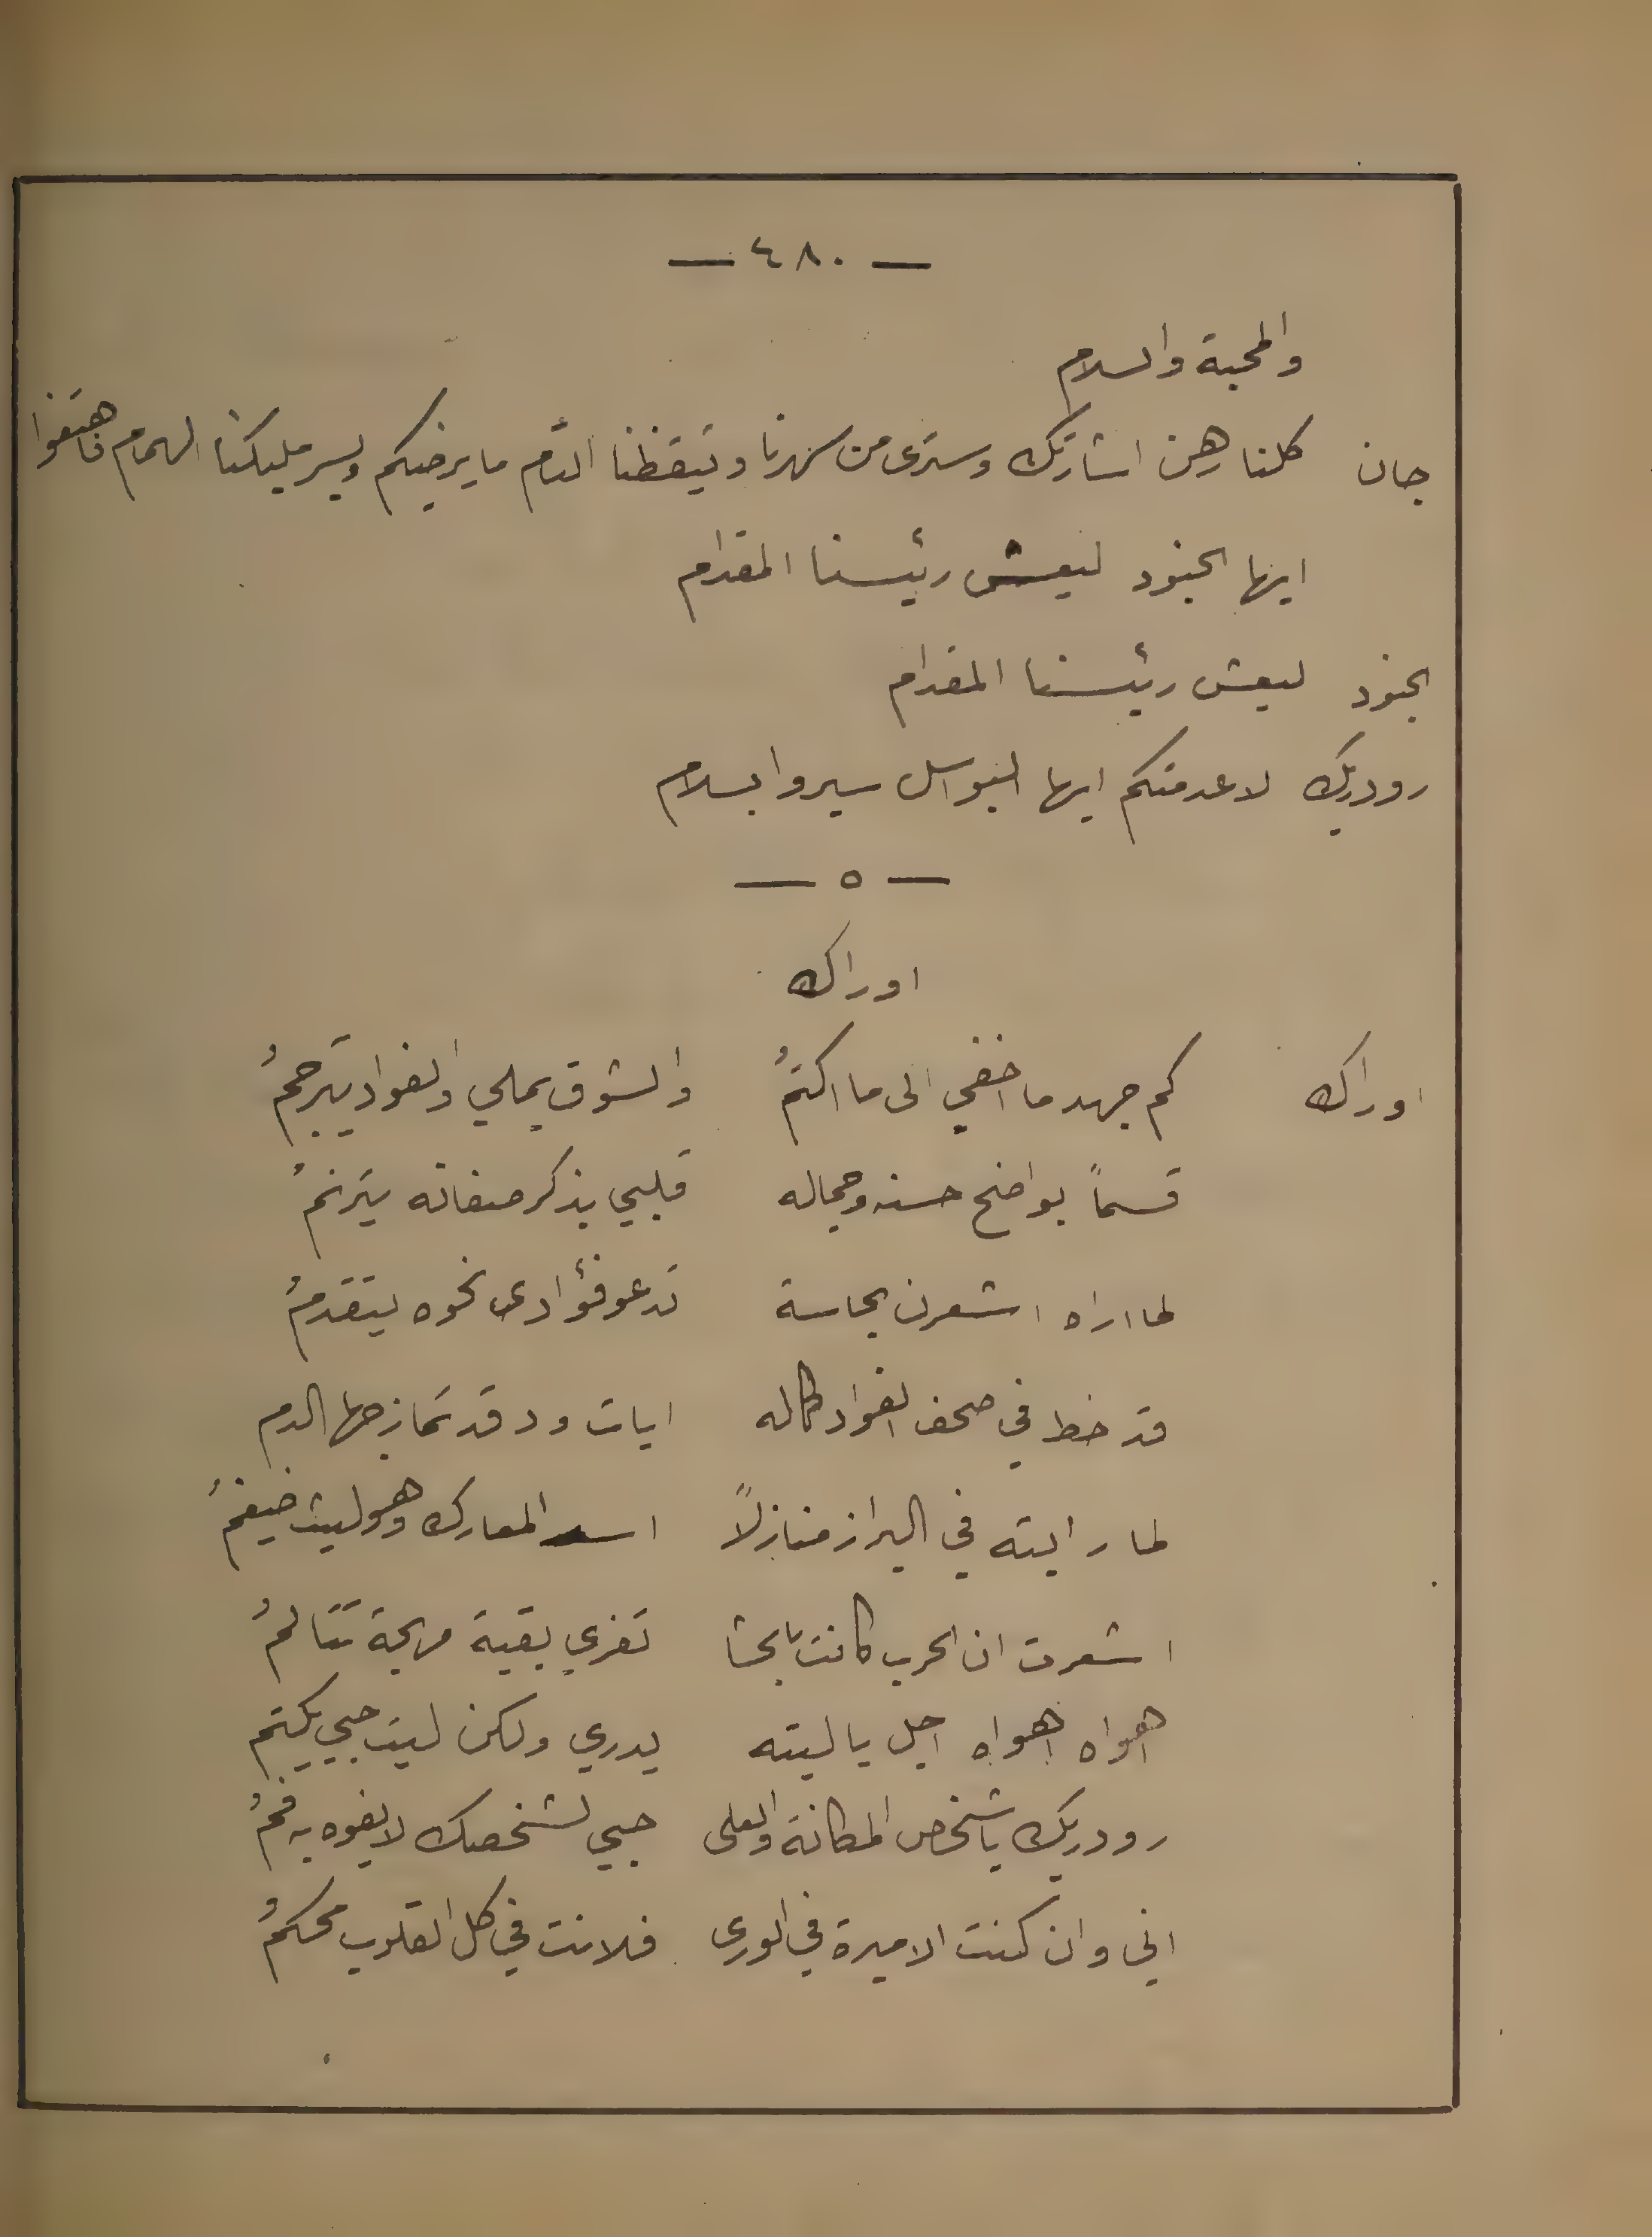 — ٤٨٠ —
والمحبة والسلام
جان كلنا رهن اشارتك وسترى من سهرنا وتيقظنا التام ما يرضيكم ويسر مليكنا الهمام فاهتفوا
ايها الجنود ليعش رئيسنا المقدام
الجنود ليعش رئيسنا المقدام
رودريك لا عدمتكم ايها البواسل سيروا بسلام
— ٥ —
اوراك
اوراك كم جهد ما اخفي الى ما اكتمُ والشوق يملي والفواد يترجمُ
قسماً بواضح حسنه وجماله قلبي بذكر صفاته يترنمُ
لما اراه اشعرن بحاسة تدعو فؤادى نحوه يتقدمُ
قد خط في صحف الفواد كماله ايات ود قد تمازجها الدم
لما رايته في البراز منازلاً اسد المعارك وهو ليث ضيغمُ
اشعرت ان الحرب كانت بالحشا تفري بقية مهجة تتالمُ
اهواه اهواه اجل يا ليته يدري ولكن ليت حبي يكتم
رودريك يا شخص المكانة والعلى حبي لشخصك لا يفوه به فمُ
اني وان كنت الاميرة في الورى فلانت في كل القلوب محكمُ